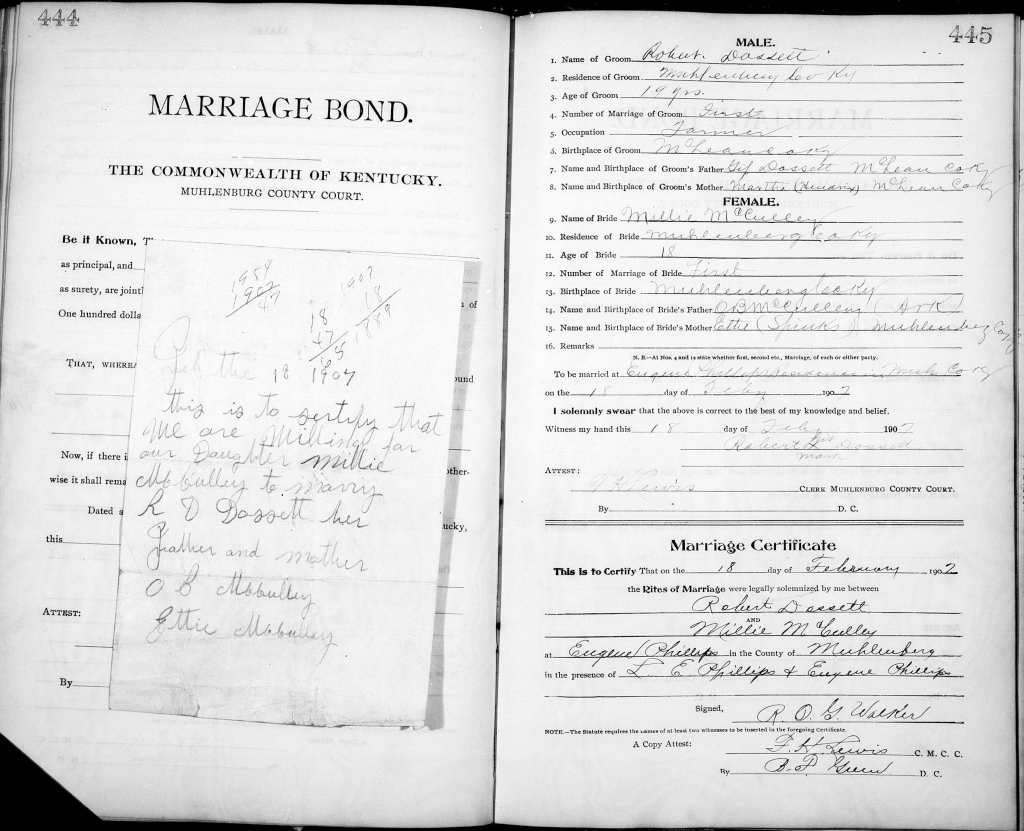 444
MARRIAGE BOND.
THE COMMONWEALTH OF KENTUCKY.
MUHLENBURG COUNTY COURT.
Be it Known, T
as principal, and
as surety, are jointl
n of
One hundred dolla
THAT, WHEREA
ound
Now, if there i
other-
wise it shall rema
Dated a
ucky,
this
ATTEST:
By
1954
1907
47
1907
18
1889
18
47
65
Feb the 18 1907
this is to sertify that
We are Willing for
our Daughter Millie
McCulley to marry
R D Dossett her
Father and mother
O B McCulley
Ettie McCulley
445
MALE.
1. Name of Groom Robert Dossett
2. Residence of Groom Muhlenburg Co Ky
3. Age of Groom 19 yrs.
4. Number of Marriage of Groom First
5. Occupation Farmer
6. Birthplace of Groom McLean Co Ky
7. Name and Birthplace of Groom's Father Dossett McLean Co Ky
8. Name and Birthplace of Groom's Mother Martha McLean Co Ky
FEMALE.
9. Name of Bride Millie McCulley
10. Residence of Bride Muhlenberg Co Ky
11. Age of Bride 18
12. Number of Marriage of Bride First
13. Birthplace of Bride Muhlenberg Co Ky
14. Name and Birthplace of Bride's Father O B McCulley (Ark)
15. Name and Birthplace of Bride's Mother Ettie (Spinks) Muhlenberg Co Ky
16. Remarks
N. B.—At Nos. 4 and 12 state whether first, second etc., Marriage, of each or either party.
To be married at Eugene Residence Muh Co Ky
on the 18 day of Feby 1907
I solemnly swear that the above is correct to the best of my knowledge and belief.
Witness my hand this 18 day of Feby 1907
his
Robert X Dossett
mark
ATTEST:
Lewis CLERK MUHLENBURG COUNTY COURT.
By D. C.
Marriage Certificate
This is to Certify That on the 18 day of February 1907
the Rites of Marriage were legally solemnized by me between
Robert Dossett
AND
Millie McCulley
at Eugene Phillips in the County of Muhlenberg
in the presence of L. E Phillips & Eugene Phillips
Signed, R. O. G. Walker
NOTE.—The Statute requires the names of at least two witnesses to be inserted in the foregoing Certificate.
A Copy Attest: T. K. Lewis C. M. C. C.
By B. F. Green D. C.